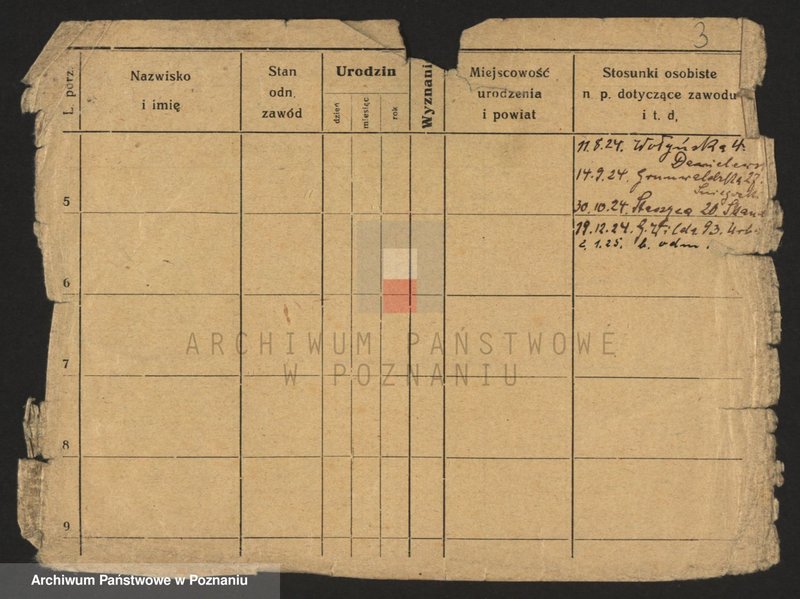 3
L. porz.
Nazwisko
i imię
Stan
odn.
zawód
Urodzin
dzień
miesiąc
rok
Wyznani
Miejscowość
urodzenia
i powiat
Stosunki osobiste
n. p. dotyczące zawodu
i t. d.
11.8.24. Wołyńska 4.
14.9.24. Grunwaldzka 27.
5
30.10.24. Staszyca 20.
19.12.24. G. Wilda 93.
2.1.25. b. odm.
6
ARCHIWUM PAŃSTWOWE
W POZNANIU
7
8
9
Archiwum Państwowe w Poznaniu